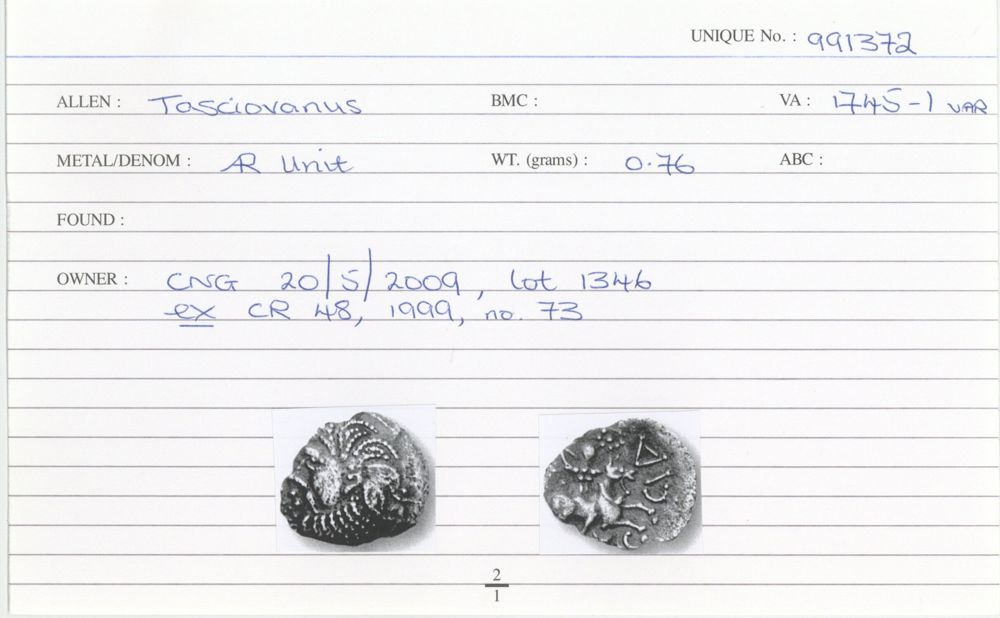 UNIQUE No. : 991372
ALLEN : Tasciovanus BMC : VA : 1745-1 VAR
METAL/DENOM : AR Unit WT. (grams) : 0.76 ABC :
FOUND :
OWNER : CNG 20/5/2009, lot 1346
ex CR 48, 1999, no. 73
2
1